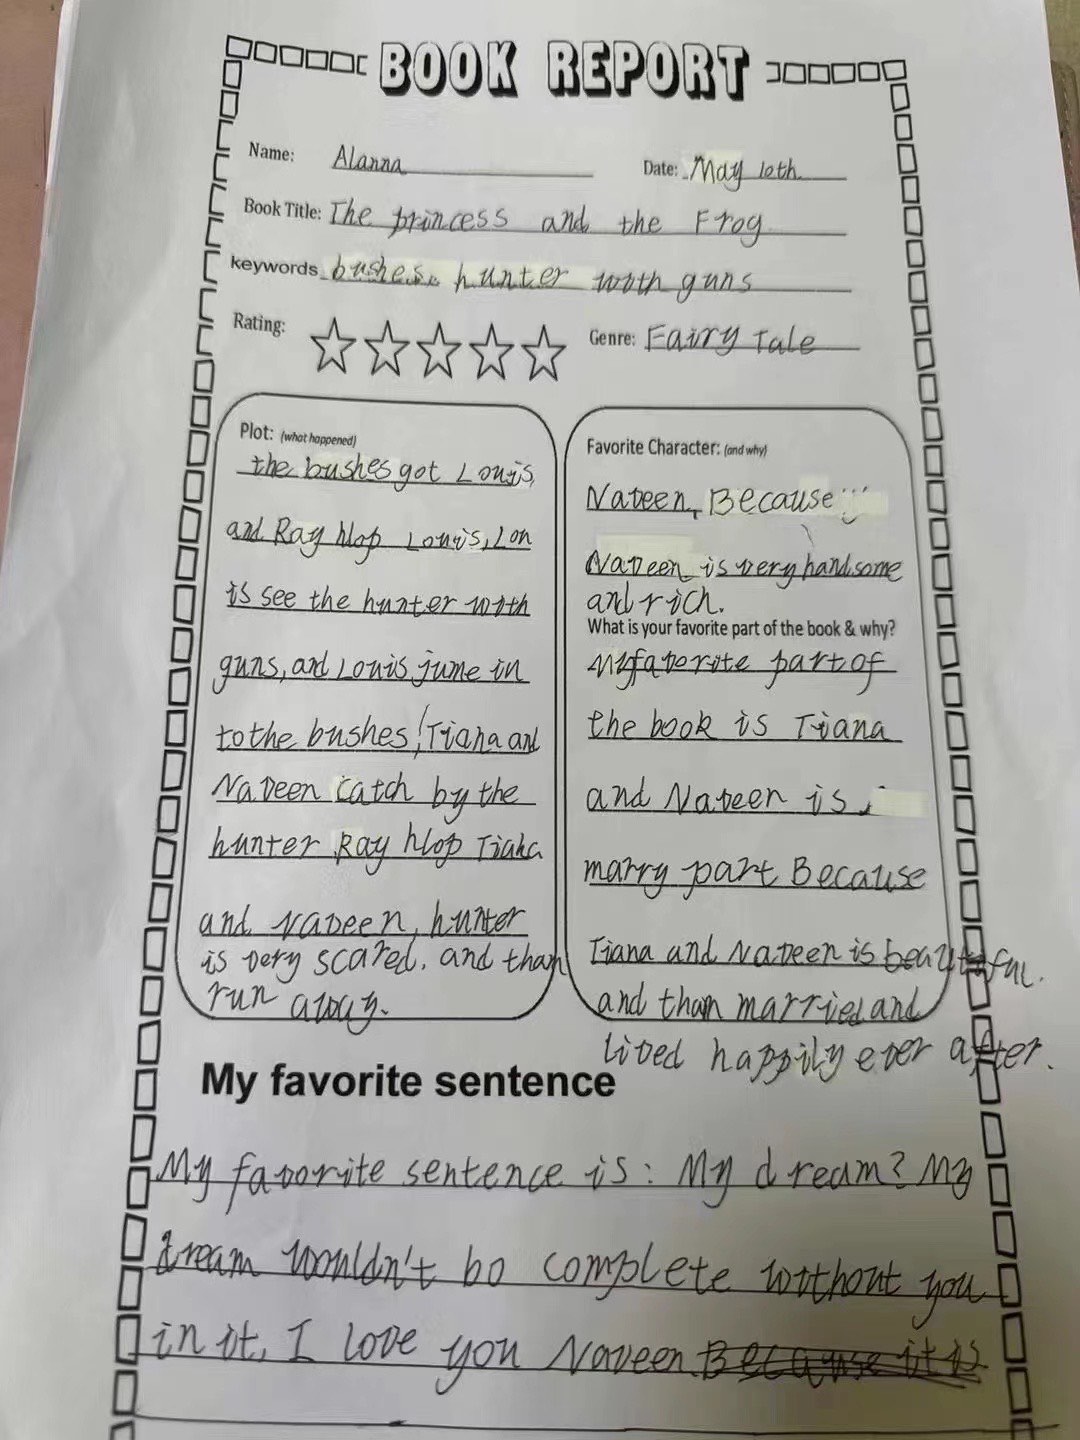 BOOK REPORT
Name: Alanna Date: May 10th
Book Title: The princess and the Frog
keywords bushes. hunter with guns
Rating: Genre: Fairy Tale
Plot: (what happened)
the bushes got Louis,
and Ray hlop Louis, Lou
is see the hunter with
guns, and Louis jume in
to the bushes! Tiana and
Naveen catch by the
hunter Ray hlop Tiana
and Naveen, hunter
is very scared. and than
run away.
Favorite Character: (and why)
Naveen, Because
Naveen is very handsome
and rich.
What is your favorite part of the book & why?
My faverite part of
the book is Tiana
and Naveen is
marry part Because
Tiana and Naveen is beautiful.
and than married and
lived happily ever after.
My favorite sentence
My favorite sentence is: My dream? My
dream wouldn't be complete without you
in it, I love you Naveen. Because it is